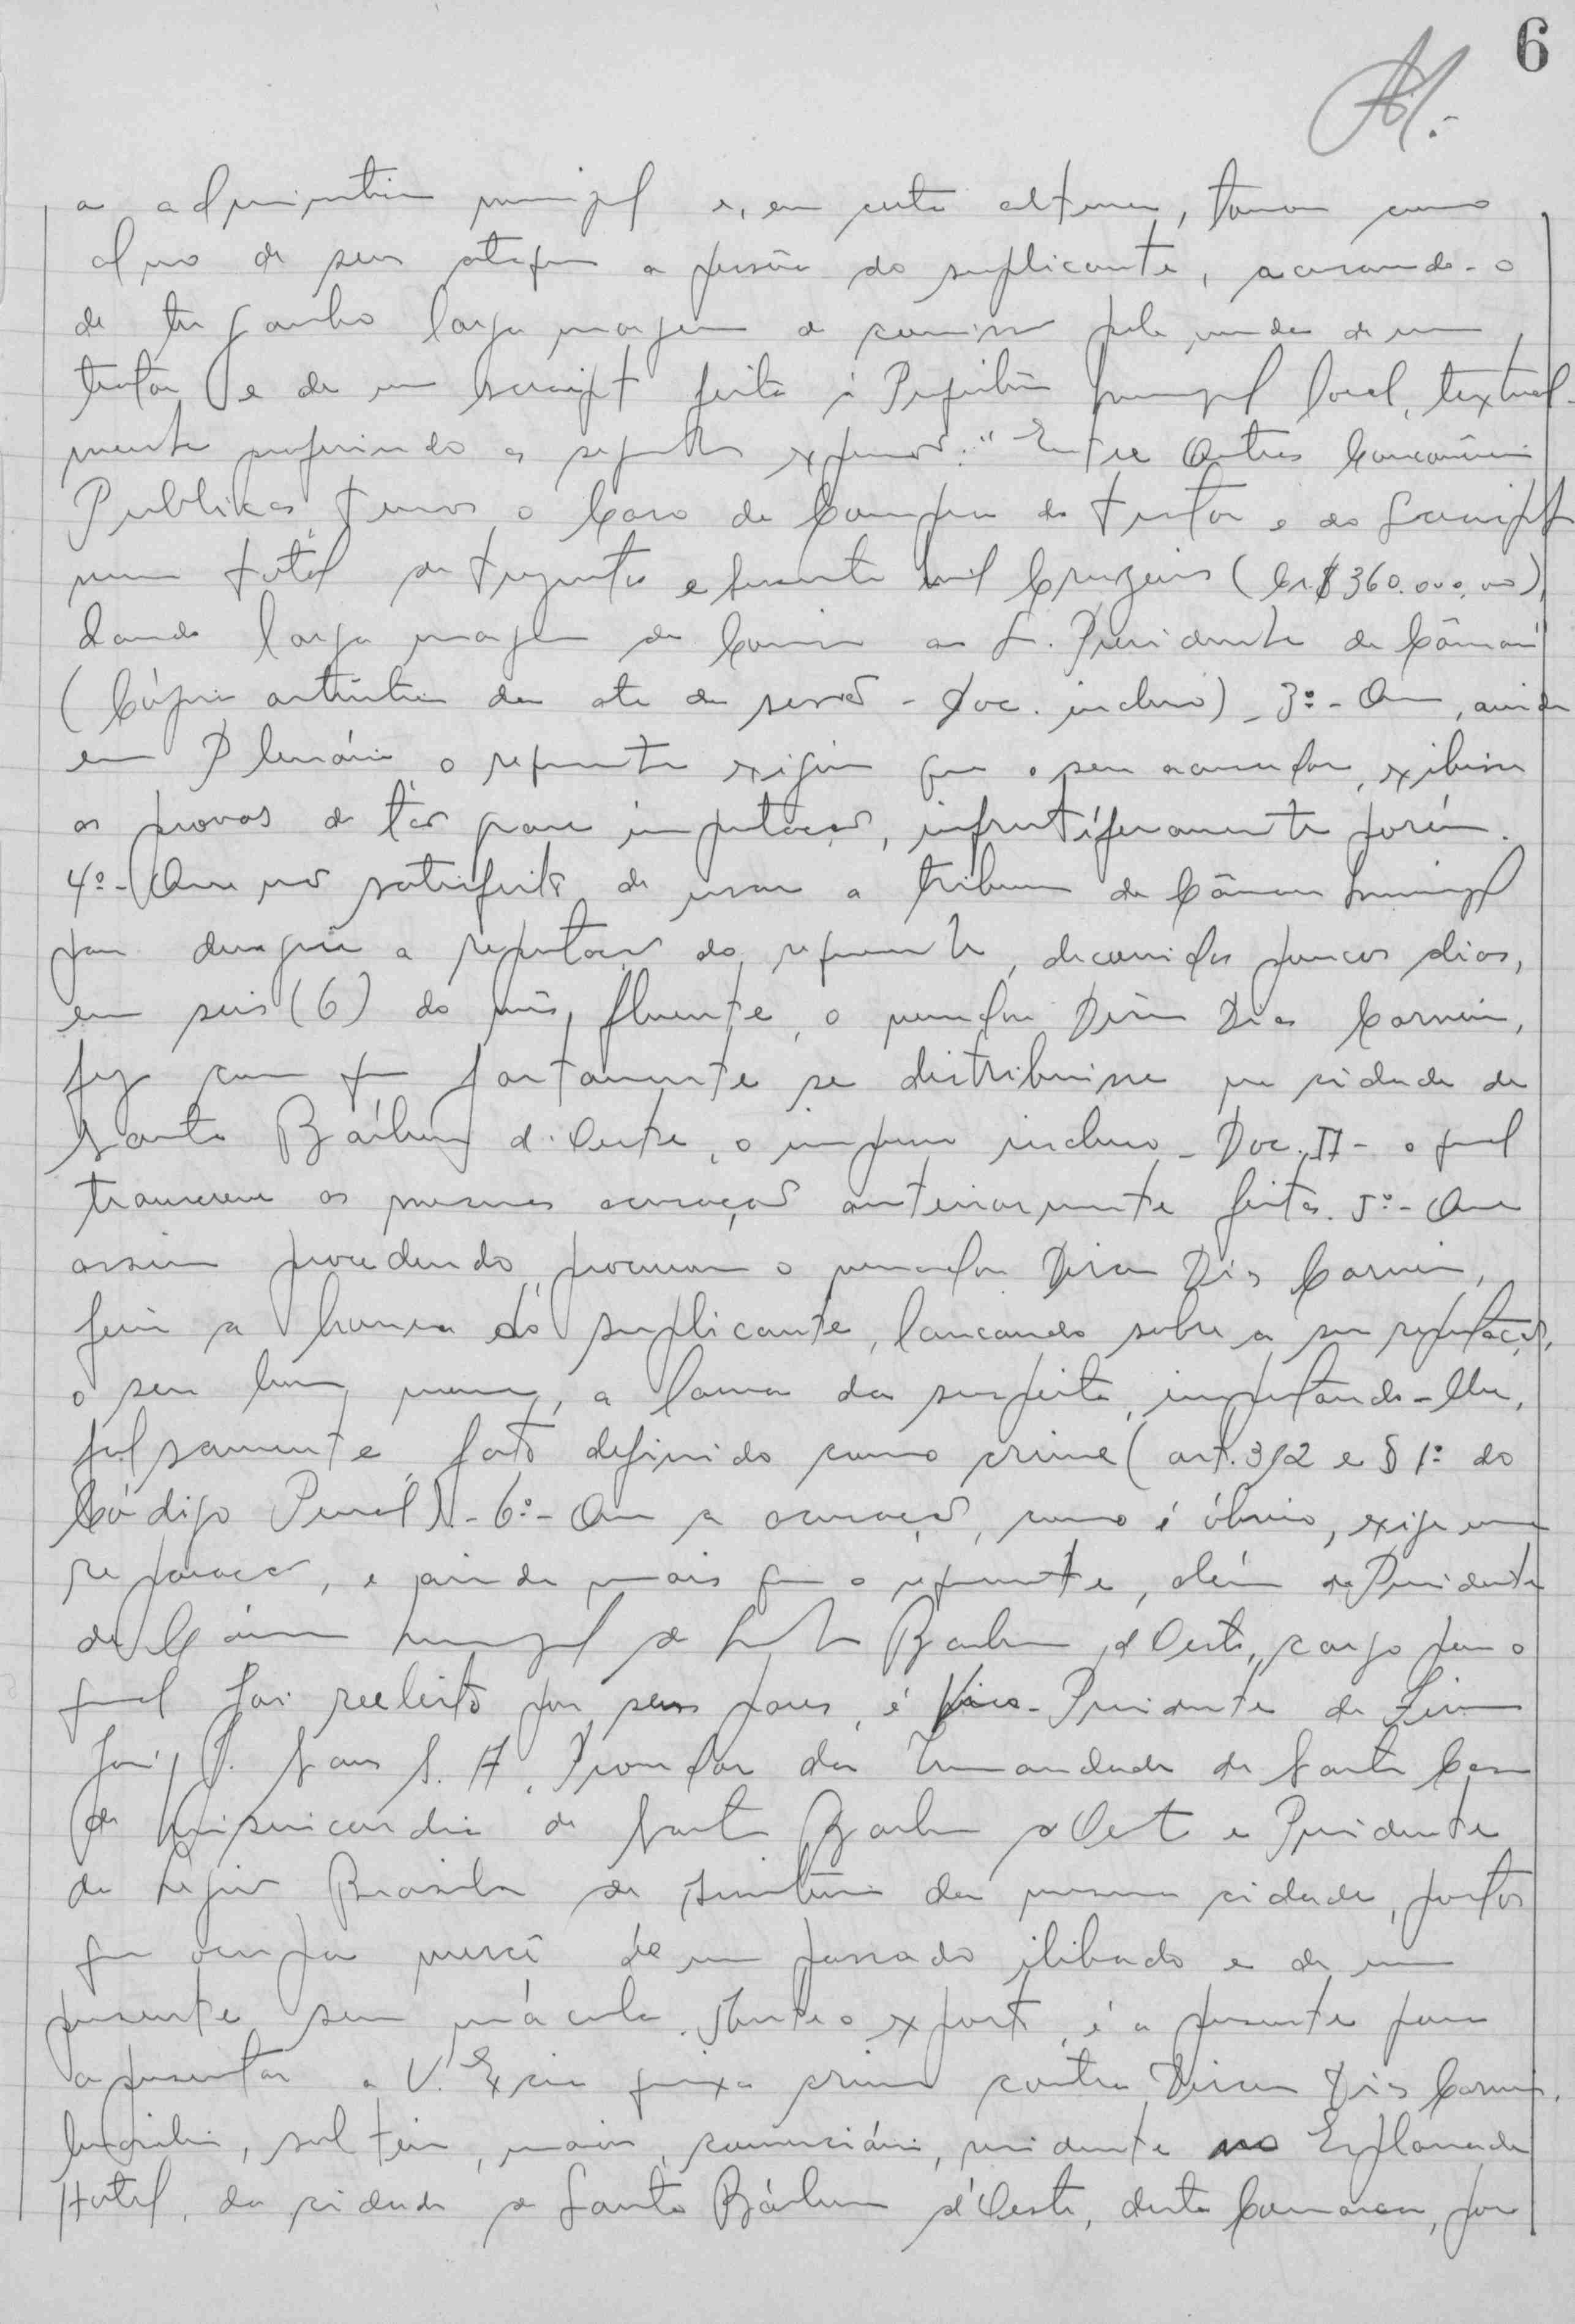 6
a administração municipal e, em certa altura, tomou como
alvo de seus ataques a pessôa do suplicante, acusando-o
de ter ganho larga margem de comissão pela venda de um
trator e de um scraipt feita à Prefeitura Municipal local, textual-
mente proferindo as seguintes expressões: "Entre Outras Concorrências
Publicas, temos o Caso da Compra do trator e do Scraipt
num total de trezentos e sessenta mil Cruzeiros (Cr$ 360.000,00),
dando larga margem de Comissão ao Sr. Presidente da Câmara"
(Cópia autêntica da ata da sessão - Doc. incluso) - 3º - Que, ainda
em Plenário, o requerente exigiu que o seu acusador, exibisse
as provas de tão grave imputação, infrutíferamente porém.
4º - Que não satisfeito de usar a tribuna da Câmara Municipal
para denegrir a reputação do requerente, decorridos poucos dias,
em seis (6) do mês fluente, o vereador Dirceu Dias Carneiro,
fez com que fartamente se distribuisse na cidade de
Santa Bárbara d'Oeste, o impresso incluso - Doc. II - o qual
transcreve as mesmas acusações anteriormente feitas. 5º - Que
assim procedendo, procurou o vereador Dirceu Dias Carneiro,
ferir a honra do suplicante, lançando sobre a sua reputação,
o seu bom nome, a lama da suspeita, imputando-lhe,
falsamente, fato definido como crime (art. 312 e § 1º do
Código Penal) - 6º - Que a acusação, como é óbvio, exige uma
reparação, e ainda mais que o requerente, além de Presidente
da Câmara Municipal de Santa Barbara d'Oeste, cargo para o
qual foi reeleito por seus pares, é Vice-Presidente da Firma
S. A. Provedor da Irmandade da Santa Casa
de Misericordia de Santa Barbara d'Oeste e Presidente
da Legião Brasileira de Assistência da mesma cidade, postos
que ocupa mercê de um passado ilibado e de um
presente sem mácula. Ante o exposto, é a presente para
apresentar a V. Excia queixa crime contra Dirceu Dias Carneiro,
brasileiro, solteiro, maior, comerciário, residente no Esplanada
Hotel, da cidade de Santa Bárbara d'Oeste, desta Comarca, por